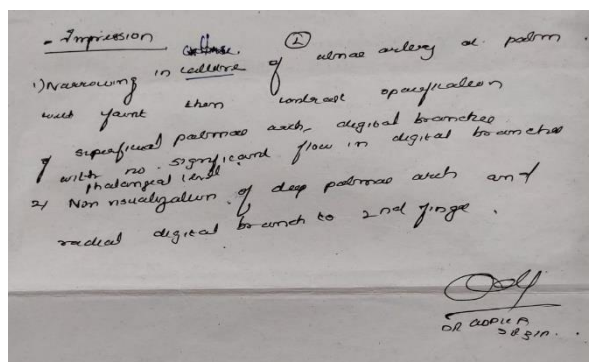 - Impression
1) Narrowing in calibre of (L) ulnar artery at palm.
with faint thin contrast opacification
of superficial palmar arch, digital branches
with no significant flow in digital branches
phalangeal level.
2) Non visualization of deep palmar arch and
radial digital branch to 2nd finger.
DR